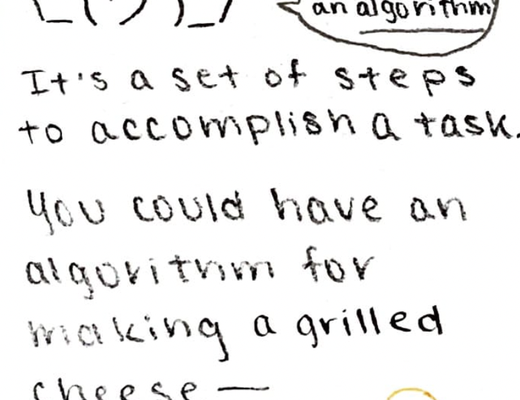 ¯\_(ツ)_/¯
an algorithm
It's a set of steps
to accomplish a task.
You could have an
algorithm for
making a grilled
cheese —